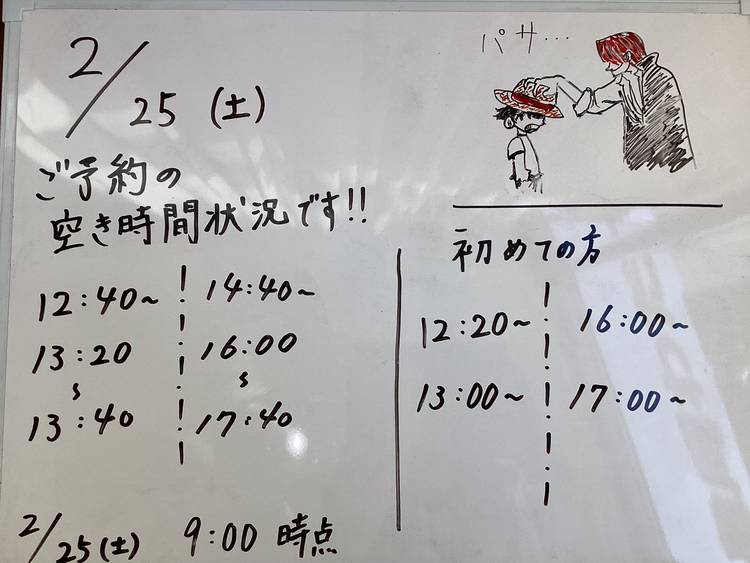 2/25 (土)
パサ...
ご予約の
空き時間状況です!!
12:40~
14:40~
13:20
〜
13:40
16:00
〜
17:40
初めての方
12:20~
16:00~
13:00~
17:00~
2/25(土) 9:00 時点